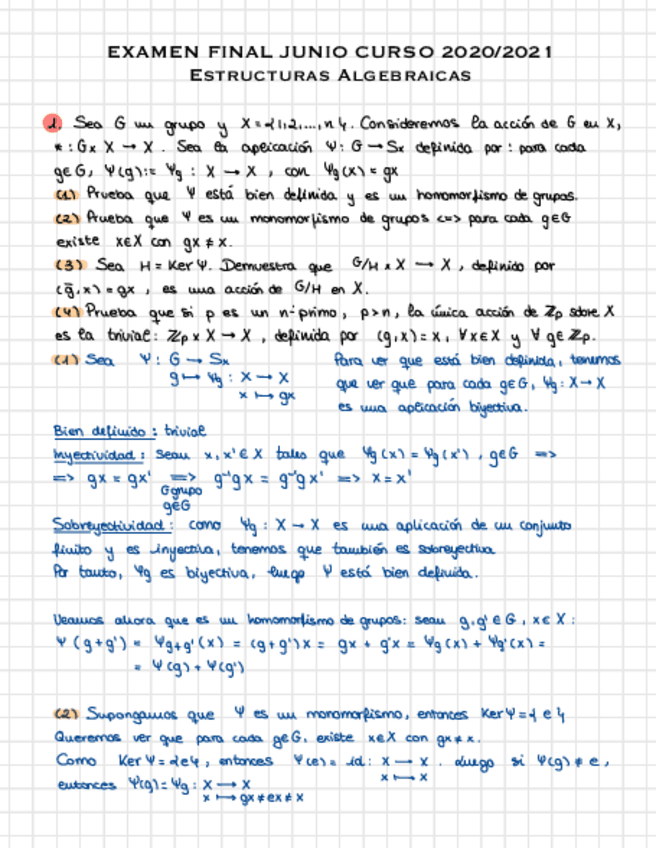 EXAMEN FINAL JUNIO CURSO 2020/2021
ESTRUCTURAS ALGEBRAICAS
1. Sea G un grupo y X = {1,2,...,n}. Consideremos la acción de G en X,
* : G x X → X. Sea la aplicación Ψ: G → Sx definida por: para cada
g∈G, Ψ(g):= Ψg : X → X, con Ψg(x) = gx
(1) Prueba que Ψ está bien definida y es un homomorfismo de grupos.
(2) Prueba que Ψ es un monomorfismo de grupos <=> para cada g∈G
existe x∈X con gx ≠ x.
(3) Sea H = Ker Ψ. Demuestra que G/H x X → X, definido por
(ḡ,x) = gx, es una acción de G/H en X.
(4) Prueba que si p es un nº primo, p>n, la única acción de Zp sobre X
es la trivial: Zp x X → X, definida por (g,x) = x, ∀x∈X y ∀ g∈Zp.
(1) Sea Ψ: G → Sx
g ↦ Ψg : X → X
x ↦ gx
Para ver que está bien definida, tenemos
que ver que para cada g∈G, Ψg: X → X
es una aplicación biyectiva.
Bien definido: trivial
Inyectividad: Sean x, x' ∈ X tales que Ψg(x) = Ψg(x'), g∈G =>
=> gx = gx' => g⁻¹gx = g⁻¹gx' => x = x'
G grupo
g∈G
Sobreyectividad: como Ψg : X → X es una aplicación de un conjunto
finito y es inyectiva, tenemos que también es sobreyectiva
Por tanto, Ψg es biyectiva, luego Ψ está bien definida.
Veamos ahora que es un homomorfismo de grupos: sean g, g' ∈ G, x∈X:
Ψ(g+g') = Ψg+g'(x) = (g+g')x = gx + g'x = Ψg(x) + Ψg'(x) =
= Ψ(g) + Ψ(g')
(2) Supongamos que Ψ es un monomorfismo, entonces Ker Ψ = {e}
Queremos ver que para cada g∈G, existe x∈X con gx ≠ x.
Como Ker Ψ = {e}, entonces Ψ(e) = id: X → X. Luego si Ψ(g) ≠ e,
x ↦ x
entonces Ψ(g) = Ψg : X → X
x ↦ gx ≠ ex ≠ x